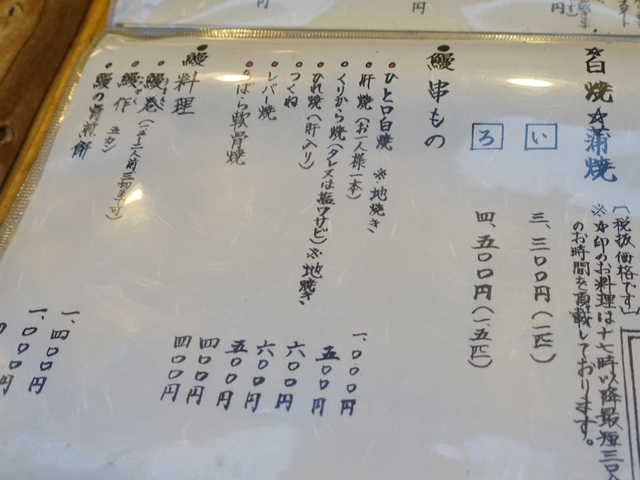 円
円
円
☆白焼☆蒲焼
〔税抜価格です〕
※☆印のお料理は十七時以降最短三〇
のお時間を頂戴しております。
い 三、三〇〇円(一匹)
ろ 四、五〇〇円(一、五匹)
●鰻串もの
●ひと口白焼 ※地焼き 一、〇〇〇円
●肝焼(お一人様一本) 五〇〇円
●くりから焼(タレ又は塩ワサビ) 六〇〇円
●ひれ焼(肝入り)※地焼き 六〇〇円
●つくね 五〇〇円
●レバー焼 四〇〇円
●あばら軟骨焼 四〇〇円
●鰻料理
●鰻巻(二人前三切半可) 一、四〇〇円
●鰻作 一、〇〇〇円
●鰻の骨煎餅 〇円